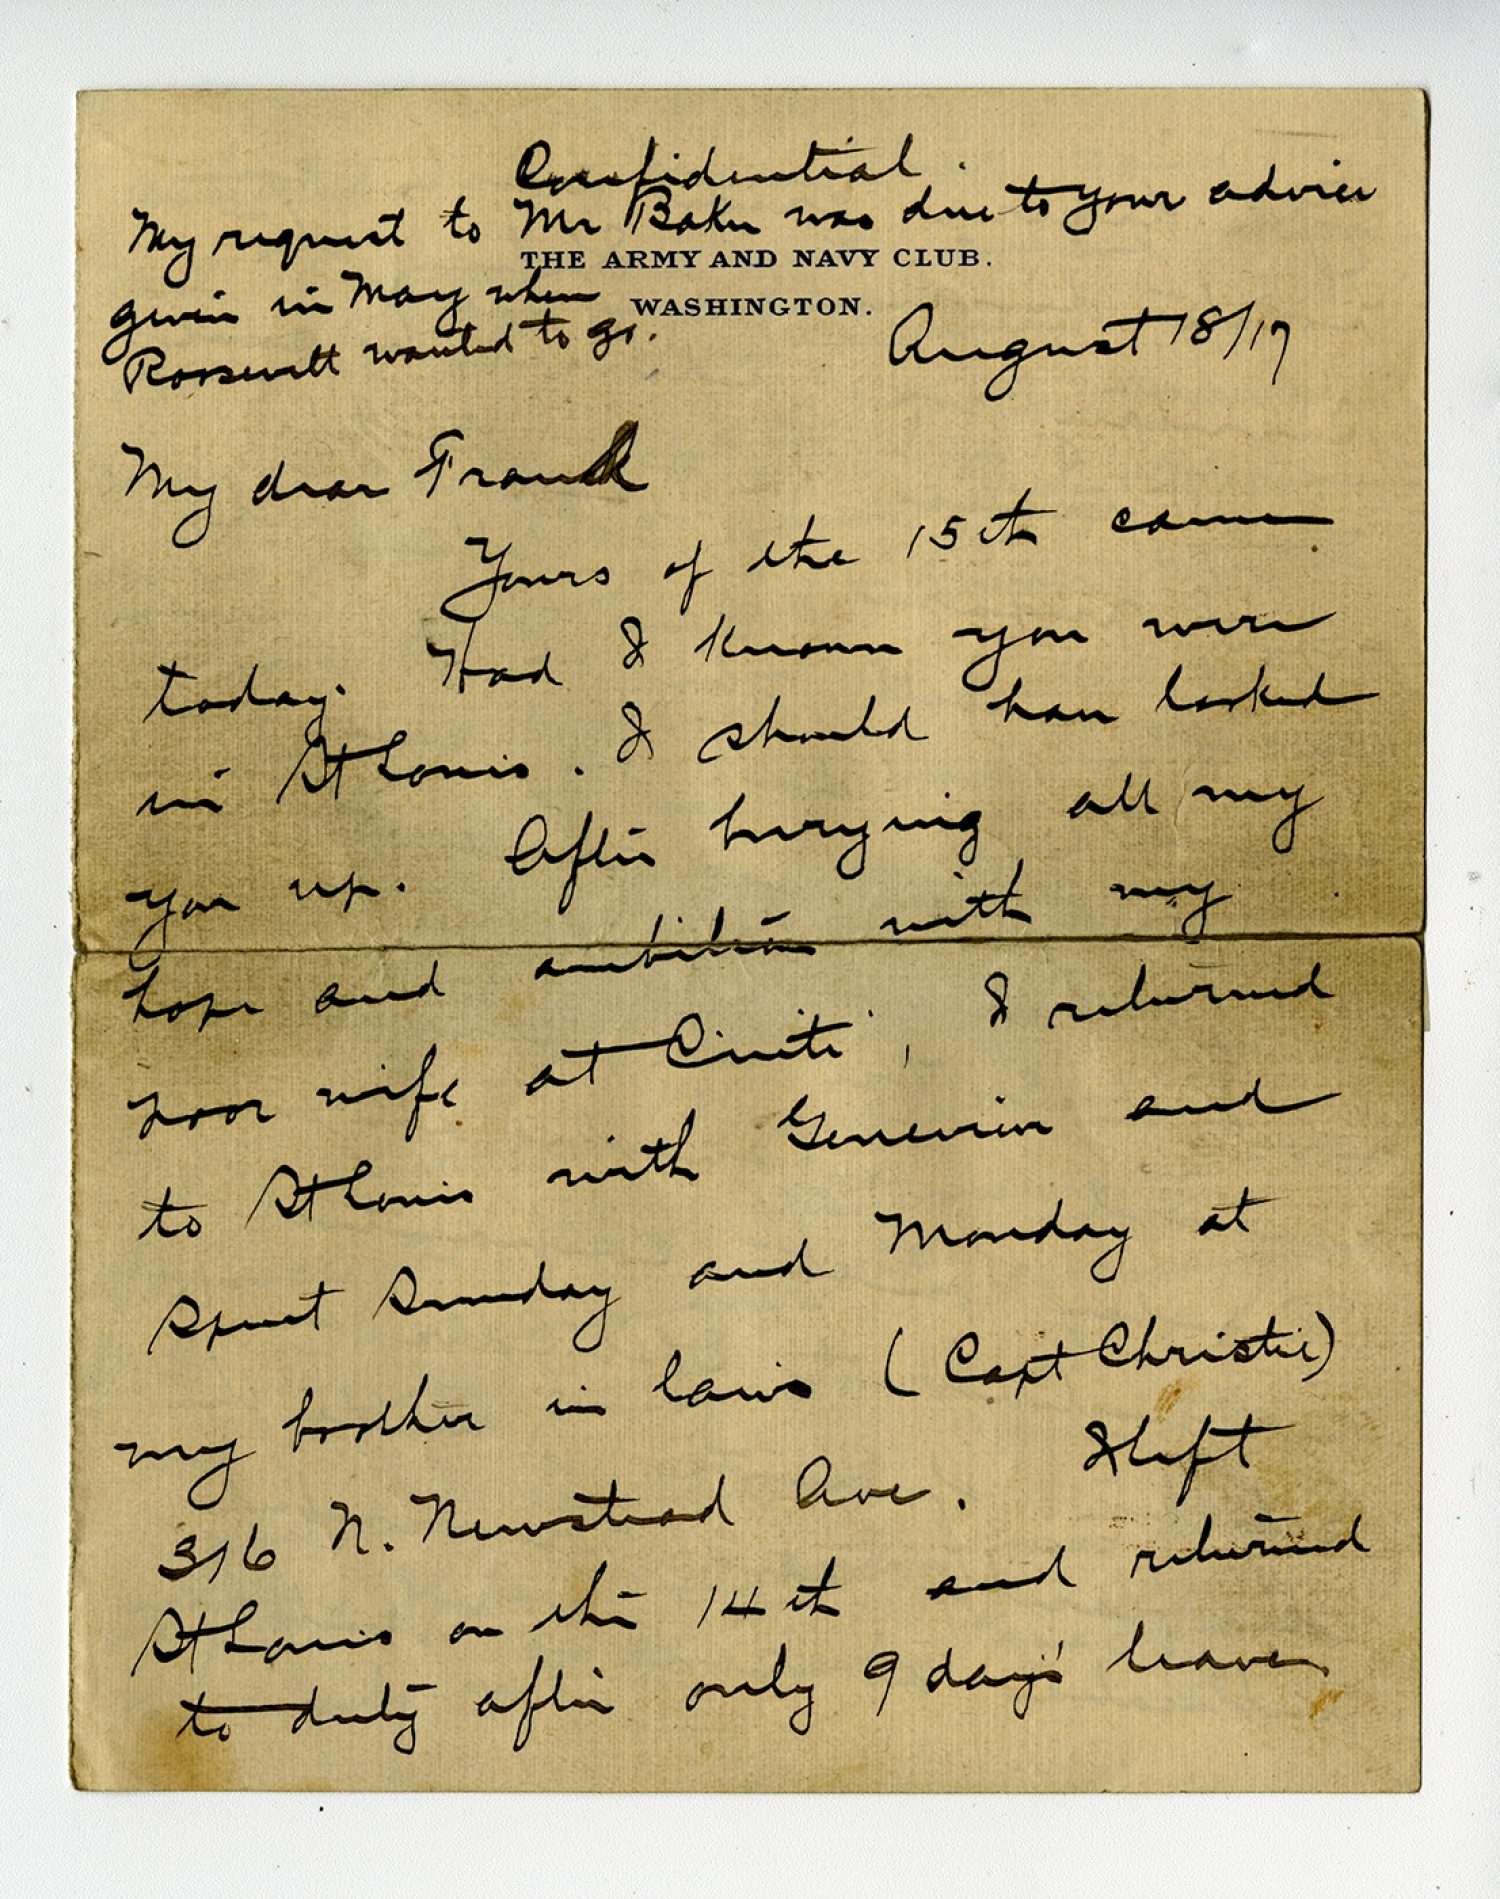 Confidential.
My request to Mr Baker was due to your advice
THE ARMY AND NAVY CLUB.
given in May when
WASHINGTON.
Roosevelt wanted to go.
August 18/17
My dear Frank
Yours of the 15th came
today. Had I known you were
in St Louis. I should have looked
you up. After burying all my
hope and ambition with my
poor wife at Cinti, I returned
to St Louis with Genevieve and
spent Sunday and Monday at
my brother in laws (Capt Christie)
316 N. Newstead Ave. I left
St Louis on the 14th and returned
to duty after only 9 days' leave